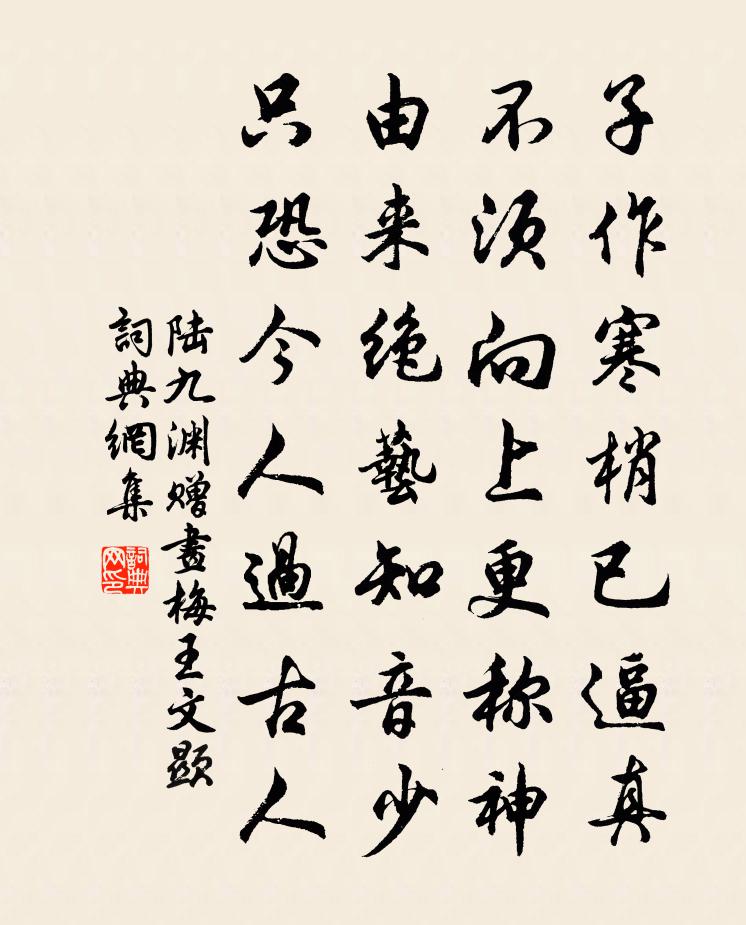 子作寒梢已逼真
不须向上更称神
由来绝藝知音少
只恐今人過古人
陆九渊赠畫梅王文顯
詞典網集
詞典网印